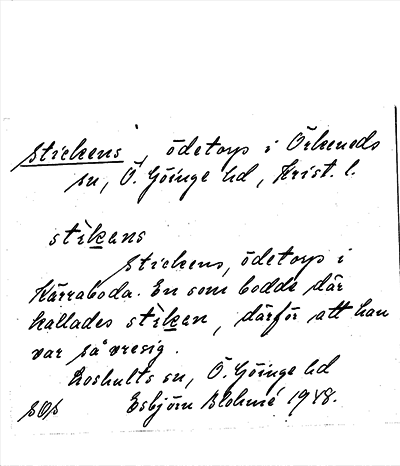 Stickens, ödetorp i Örkeneds
sn, Ö. Göinge hd, Krist. l.
stikens
Stickens, ödetorp i
Kärraboda. En som bodde där
kallades stiken, därför att han
var så vresig.
Loshults sn, Ö. Göinge hd
Esbjörn Blohmé 1948.